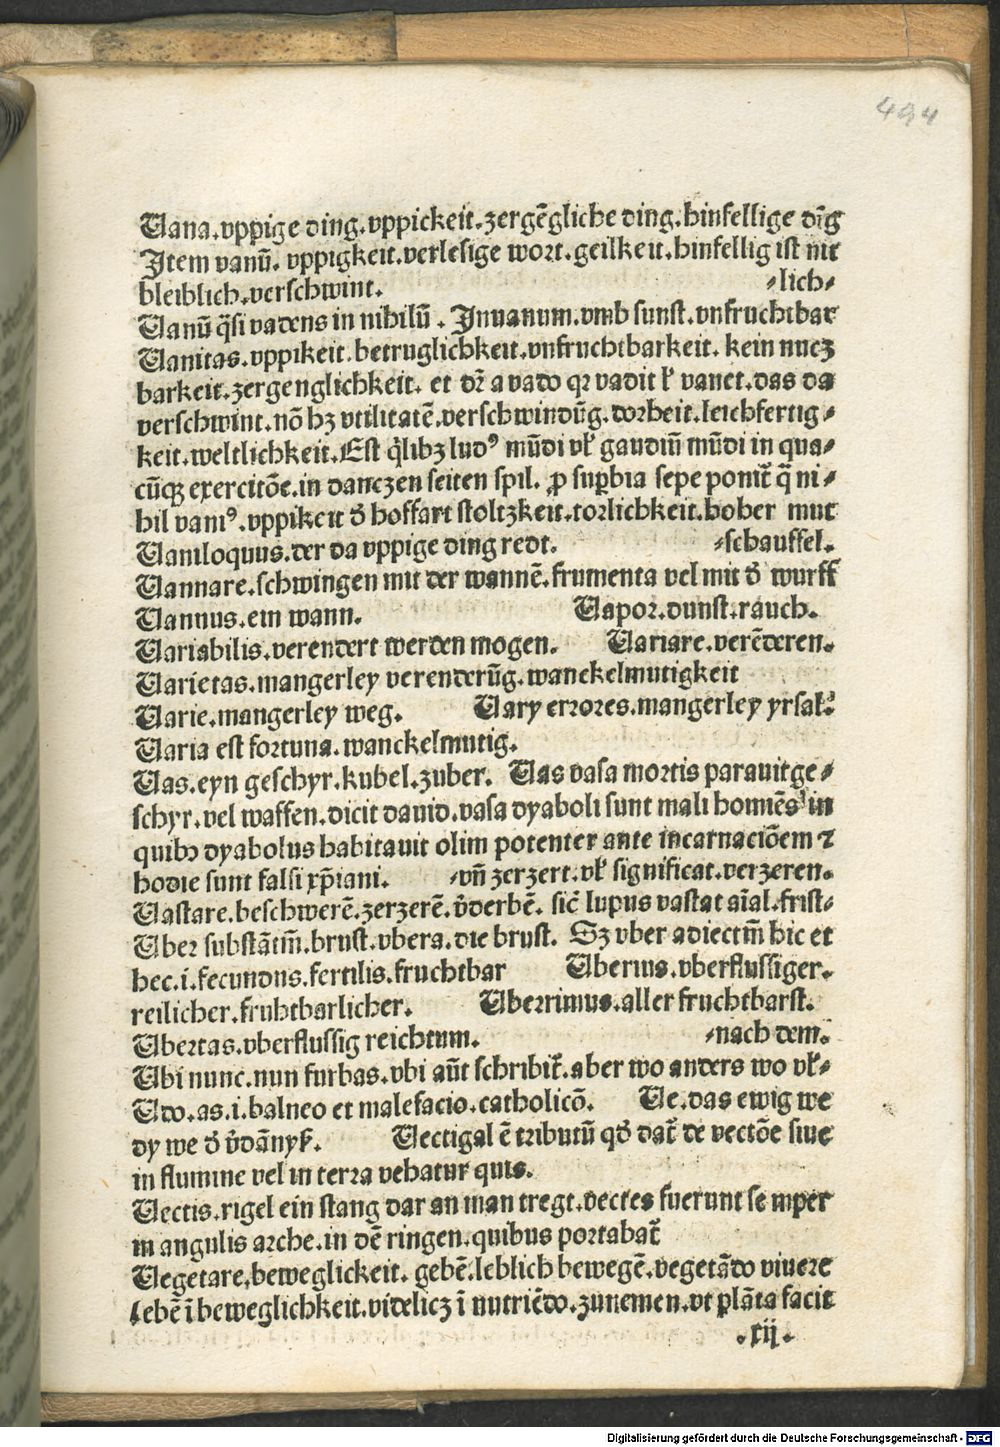 494
Uana.vppige ding.vppickeit.zergēgliche ding.hinfellige dīg
Item vanū. vppigkeit.verlesige wort.geilkeit.hinfellig ist nit
bleiblich.verschwint. ⸗lich⸗
Uanū q̄si vadens in nihilū. Inuanum.vmb sunst.vnfruchtbar
Uanitas.vppikeit.betruglichkeit.vnfruchtbarkeit. kein nucz
barkeit.zergenglichkeit. et dr̄ a vado qꝛ vadit ł vanet.das da
verschwint.nō hꝫ vtilitatē.verschwindūg.dorheit.leichfertig⸗
keit.weltlichkeit.Est q̄libꝫ ludꝰ mūdi vł gaudiū mūdi in qua⸗
cūqꝫ exercitōe.in danczen seiten spil. ꝓ suꝑbia sepe ponit̄ q̄ ni⸗
hil vaniꝰ.vppikeit d̄ hoffart stoltzkeit.torlichkeit.hoher mut
Uaniloquus.der da vppige ding redt. ⸗schauffel.
Uannare.schwingen mit der wannē.frumenta vel mit d̄ wurff
Uannus.ein wann. Uapor.dunst.rauch.
Uariabilis.verendert werden mogen. Uariare.verēderen.
Uarietas.mangerley verenderūg.wanckelmutigkeit
Uarie.mangerley weg. Uary errores.mangerley yrsal.
Uaria est fortuna.wanckelmutig.
Uas.eyn geschyr.kubel.zuber. Uas vasa mortis parauit ge⸗
schyr.vel waffen.dicit dauid.vasa dyaboli sunt mali homiēs in
quibꝰ dyabolus habitauit olim potenter ante incarnaciōem ⁊
hodie sunt falsi xp̄iani. ⸗vn̄ zerzert.vł significat.verzeren.
Uastare.beschwerē.zerzerē.v̄derbē. sic̄ lupus vastat aīal.frist⸗
Uber substātm̄.brust.vbera.die brust. Sꝫ vber adiectm̄ hic et
hec.i.fecundus.fertilis.fruchtbar Uberius.vberflussiger.
reilicher.fruhtbarlicher. Uberrimus.aller fruchtbarst.
Ubertas.vberflussig reichtum. ⸗nach dem.
Ubi nunc.nun furbas.vbi aūt schribit̄.aber wo anders wo vł⸗
Udo.as.i.balneo et malefacio.catholicō. Ue.das ewig we
dy we d̄ v̄dānyß. Uectigal ē tributū qd̄ dat̄ de vectōe siue
in flumine vel in terra vehatur quis.
Uectis.rigel ein stang dar an man tregt.vectes fuerunt semper
in angulis arche.in dē ringen.quibus portabat̄
Uegetare.beweglickeit. gebē.leblich bewegē.vegetādo viuere
lebē ī beweglichkeit.videlicꝫ ī nutriēdo.zunemen.vt plāta facit
.xij.
Digitalisierung gefördert durch die Deutsche Forschungsgemeinschaft - DFG